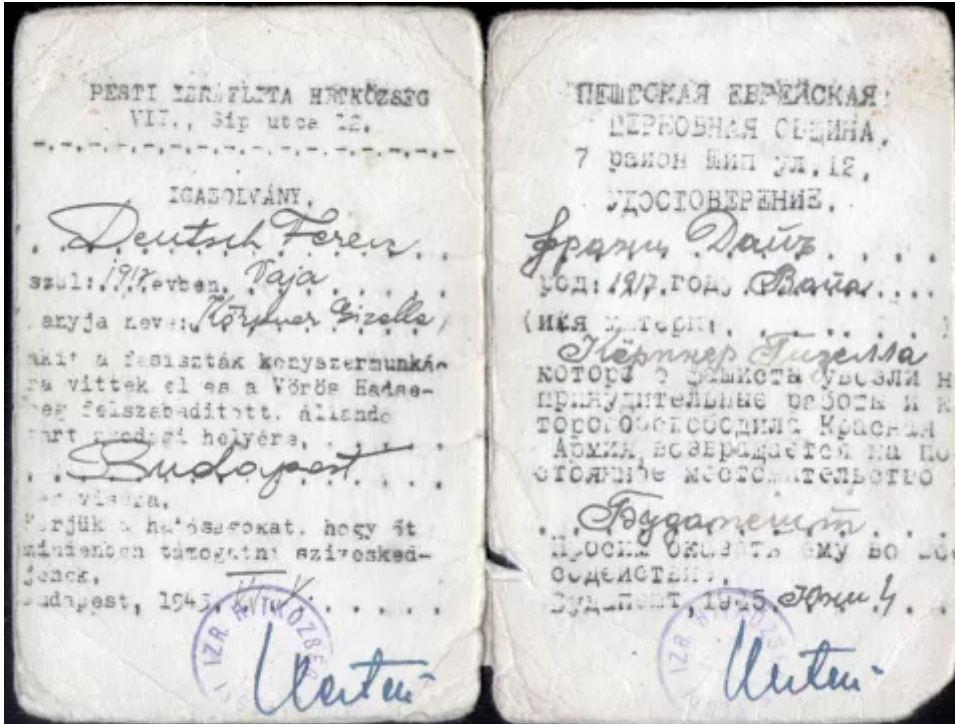 PESTI IZRAELITA HITKÖZSÉG
VII., Sip utca 12.
IGAZOLVÁNY.
Deutsch Ferenc
szül: 1917. évben. Vaja
anyja neve: Gizella
akit a fasiszták kényszermunká-
ra vittek el és a Vörös Hadse-
reg felszabadított, állandó
tart helyére,
Budapest
Kérjük a hatóságokat, hogy őt
mindenben támogatni szivesked-
jenek.
Budapest, 1945.
IZR HITKÖZSÉG
ПЕШТСКАЯ ЕВРЕЙСКАЯ
ЦЕРКОВНАЯ ОБЩИНА.
7 район Шип ул. 12.
УДОСТОВЕРЕНИЕ.
Франц Дайч
род: 1917. году Вайа
(имя матери:
Кёрпнер Гизелла
которого фашисты увезли н
принудительные работы и к
торого освободила Красная
Армия, возвращается на по
стоянное местожительство
Будапешт
Просим оказать ему во
содействия.
Будапешт, 1945.
IZR HITKÖZSÉG